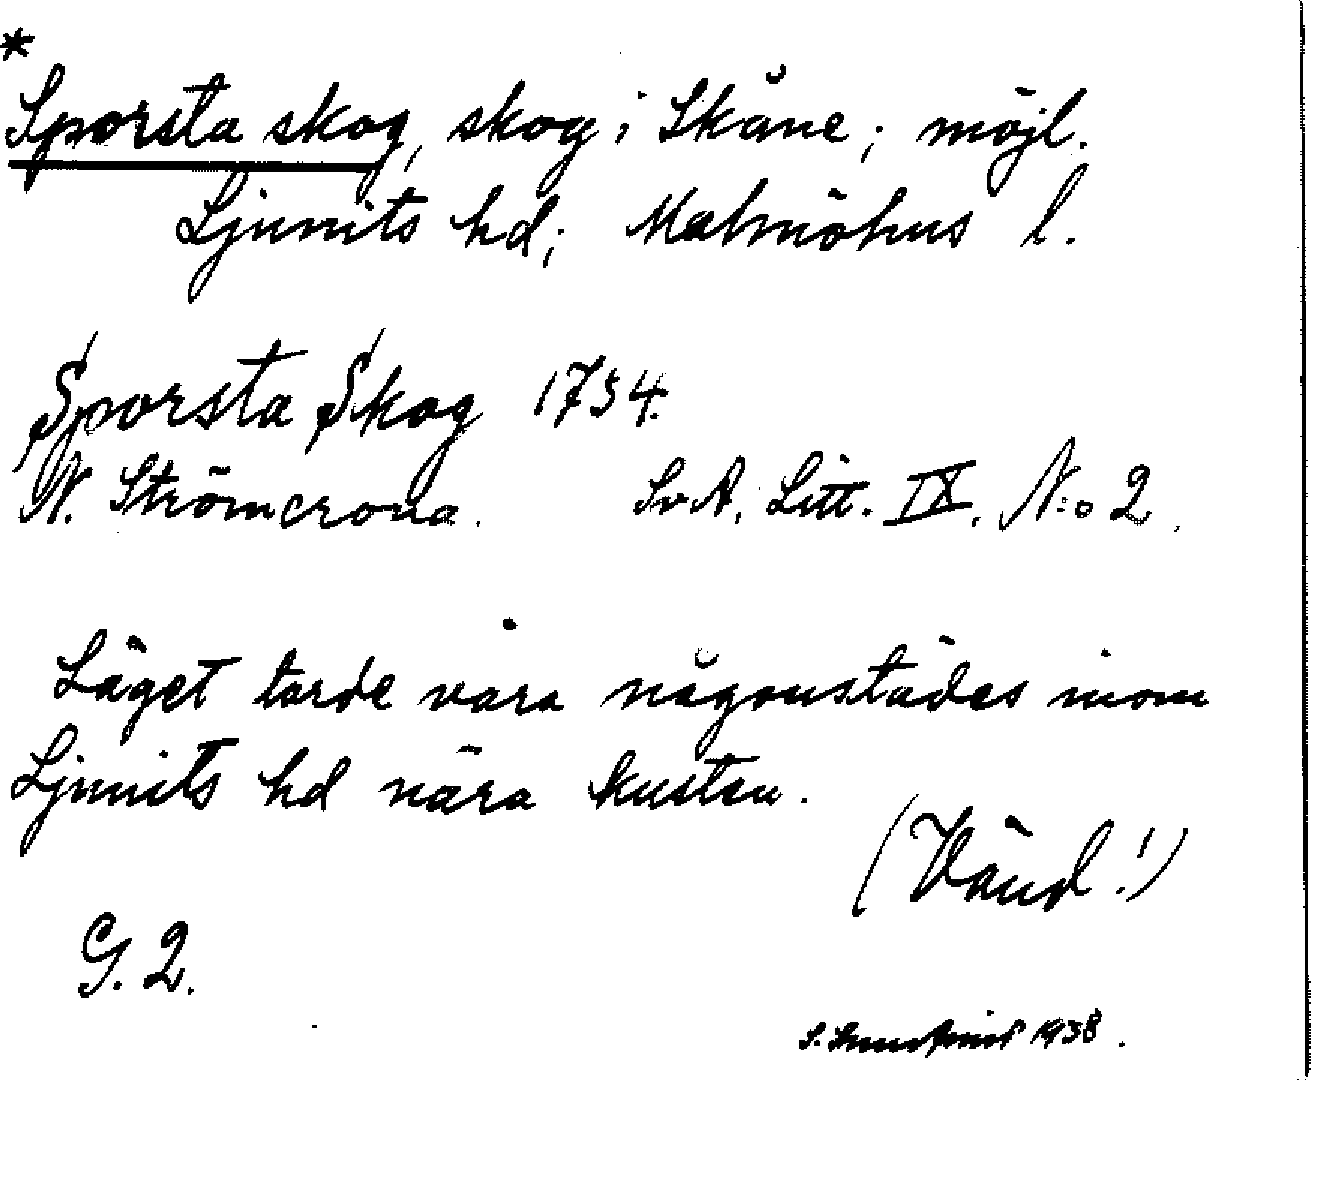 *
Sporsta skog, skog i Skåne; möjl.
Ljunits hd; Malmöhus l.
Sporsta Skog 1734.
N. Strömcrona. SvA. Litt. IX. N:o 2.
Läget torde vara någonstädes inom
Ljunits hd nära kusten.
(Vänd!)
G. 2.
S. 1938.